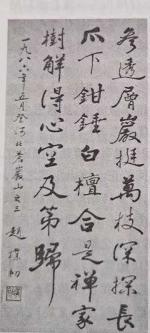 參透層巖挺萬枝深探長
爪下鉗錘白檀合是禪家
樹解得心空及第歸
一九八六年五月登河北蒼巖山之三 趙樸初